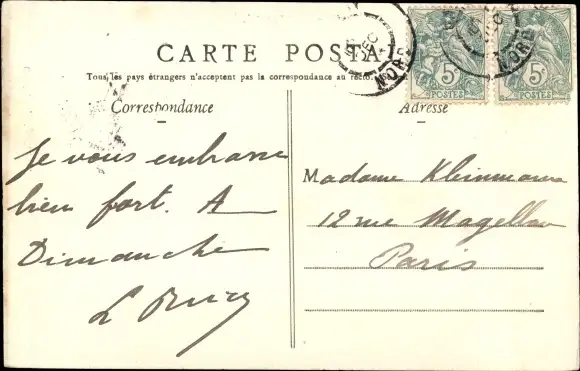 CARTE POSTA
Tous les pays étrangers n'acceptent pas la correspondance au recto.
Correspondance
Adresse
Je vous embrasse
bien fort. A
Dimanche
L
Madame
12 rue Magellan
Paris
5c
POSTES
5c
POSTES
NORD
NORD
DEC